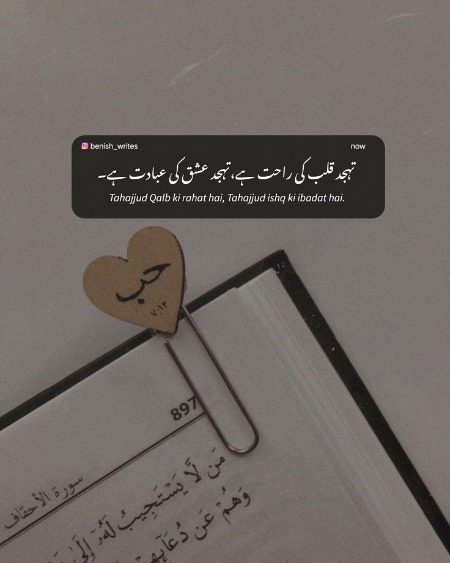 benish_writes now
تہجد قلب کی راحت ہے، تہجد عشق کی عبادت ہے۔
Tahajjud Qalb ki rahat hai, Tahajjud ishq ki ibadat hai.
حب
٧:١٣
897
سورة الأحقاف
مَن لَّا يَسْتَجِيبُ لَهُۥٓ إِلَىٰ
وَهُمْ عَن دُعَآئِهِمْ